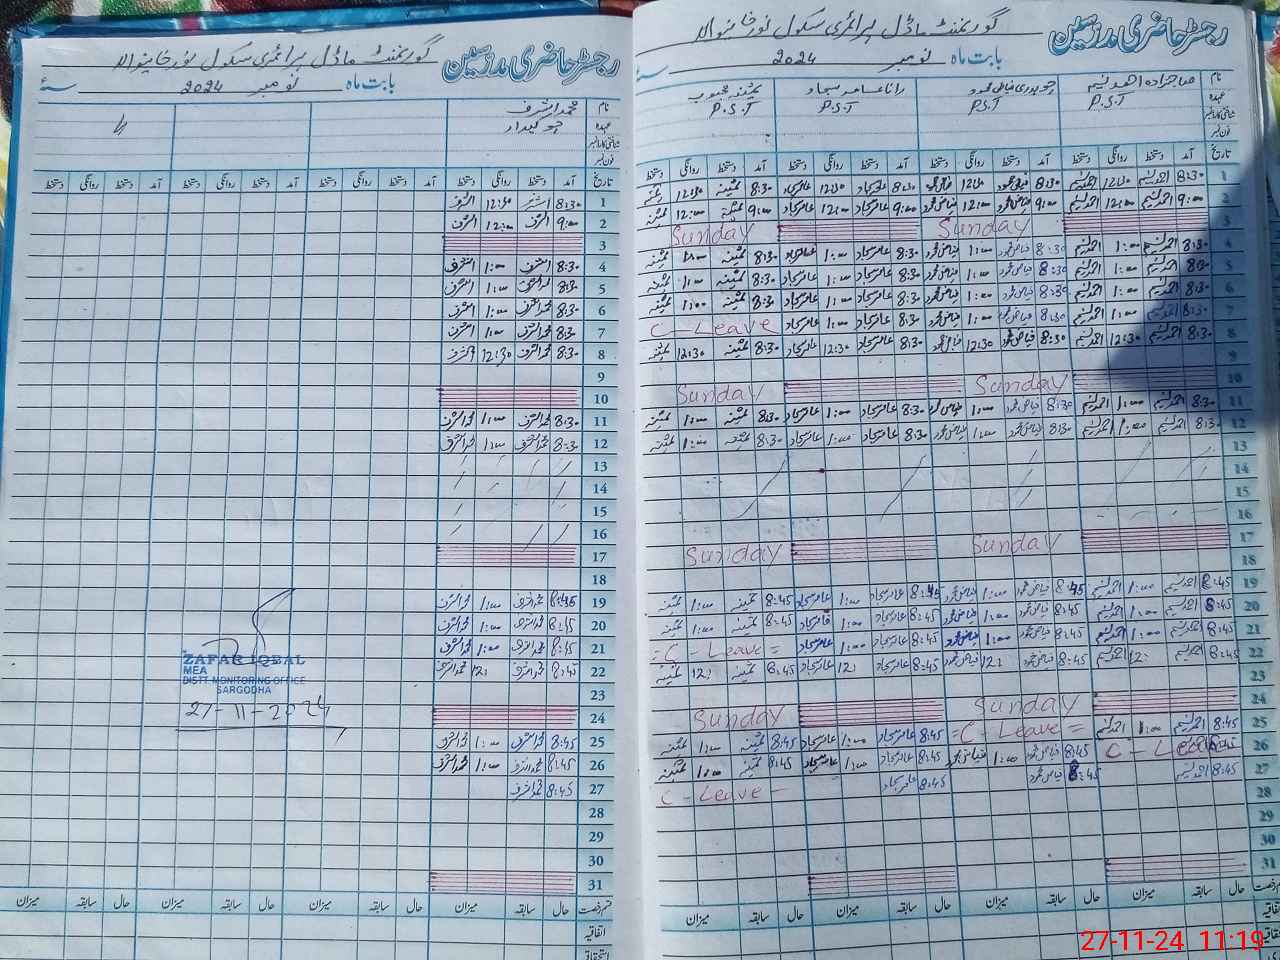 رجسٹر حاضری مدرسین گورنمنٹ ماڈل پرائمری سکول نورخانیوالا
بابت ماہ نومبر 2024 سنہ
نام صاحبزادہ احمد نسیم چوہدری فیاض محمود رانا عامر سجاد ثمینہ محبوب
عہدہ P.S.T P.S.T P.S.T P.S.T
شناختی کارڈ نمبر
فون نمبر
تاریخ آمد دستخط روانگی دستخط آمد دستخط روانگی دستخط آمد دستخط روانگی دستخط آمد دستخط روانگی دستخط
1 8:30 احمد نسیم 12:30 احمد نسیم 8:30 فیاض محمود 12:30 فیاض محمود 8:30 عامر سجاد 12:30 عامر سجاد 8:30 ثمینہ 12:30 ثمینہ
2 9:00 احمد نسیم 12:00 احمد نسیم 9:00 فیاض محمود 12:00 فیاض محمود 9:00 عامر سجاد 12:00 عامر سجاد 9:00 ثمینہ 12:00 ثمینہ
3 Sunday Sunday
4 8:30 احمد نسیم 1:00 احمد نسیم 8:30 فیاض محمود 1:00 فیاض محمود 8:30 عامر سجاد 1:00 عامر سجاد 8:30 ثمینہ 1:00 ثمینہ
5 8:30 احمد نسیم 1:00 احمد نسیم 8:30 فیاض محمود 1:00 فیاض محمود 8:30 عامر سجاد 1:00 عامر سجاد 8:30 ثمینہ 1:00 ثمینہ
6 8:30 احمد نسیم 1:00 احمد نسیم 8:30 فیاض محمود 1:00 فیاض محمود 8:30 عامر سجاد 1:00 عامر سجاد 8:30 ثمینہ 1:00 ثمینہ
7 8:30 احمد نسیم 1:00 احمد نسیم 8:30 فیاض محمود 1:00 فیاض محمود 8:30 عامر سجاد 1:00 عامر سجاد C - Leave
8 8:30 احمد نسیم 12:30 احمد نسیم 8:30 فیاض محمود 12:30 فیاض محمود 8:30 عامر سجاد 12:30 عامر سجاد 8:30 ثمینہ 12:30 ثمینہ
9
10 Sunday Sunday
11 8:30 احمد نسیم 1:00 احمد نسیم 8:30 فیاض محمود 1:00 فیاض محمود 8:30 عامر سجاد 1:00 عامر سجاد 8:30 ثمینہ 1:00 ثمینہ
12 8:30 احمد نسیم 1:00 احمد نسیم 8:30 فیاض محمود 1:00 فیاض محمود 8:30 عامر سجاد 1:00 عامر سجاد 8:30 ثمینہ 1:00 ثمینہ
13
14
15
16
17 Sunday Sunday
18
19 8:45 احمد نسیم 1:00 احمد نسیم 8:45 فیاض محمود 1:00 فیاض محمود 8:45 عامر سجاد 1:00 عامر سجاد 8:45 ثمینہ 1:00 ثمینہ
20 8:45 احمد نسیم 1:00 احمد نسیم 8:45 فیاض محمود 1:00 فیاض محمود 8:45 عامر سجاد 1:00 عامر سجاد 8:45 ثمینہ 1:00 ثمینہ
21 8:45 احمد نسیم 1:00 احمد نسیم 8:45 فیاض محمود 1:00 فیاض محمود 8:45 عامر سجاد 1:00 عامر سجاد = C - Leave =
22 8:45 احمد نسیم 12: احمد نسیم 8:45 فیاض محمود 12: فیاض محمود 8:45 عامر سجاد 12: عامر سجاد 8:45 ثمینہ 12: ثمینہ
23
24 Sunday Sunday
25 8:45 احمد نسیم 1:00 احمد نسیم = C - Leave = 8:45 عامر سجاد 1:00 عامر سجاد 8:45 ثمینہ 1:00 ثمینہ
26 C - Leave 8:45 فیاض محمود 1:00 فیاض محمود 8:45 عامر سجاد 1:00 عامر سجاد 8:45 ثمینہ 1:00 ثمینہ
27 8:45 احمد نسیم 8:45 فیاض محمود 8:45 عامر سجاد C - Leave -
28
29
30
31
قسم رخصت حال سابقہ میزان حال سابقہ میزان حال سابقہ میزان حال سابقہ میزان
اتفاقیہ
رجسٹر حاضری مدرسین گورنمنٹ ماڈل پرائمری سکول نورخانیوالا
بابت ماہ نومبر 2024 سنہ
نام محمد اشرف
عہدہ چوکیدار
شناختی کارڈ نمبر
فون نمبر
تاریخ آمد دستخط روانگی دستخط آمد دستخط روانگی دستخط آمد دستخط روانگی دستخط آمد دستخط روانگی دستخط
1 8:30 اشرف 12:30 اشرف
2 9:00 اشرف 12:00 اشرف
3
4 8:30 اشرف 1:00 اشرف
5 8:30 محمد اشرف 1:00 اشرف
6 8:30 محمد اشرف 1:00 اشرف
7 8:30 محمد اشرف 1:00 اشرف
8 8:30 محمد اشرف 12:30 اشرف
9
10
11 8:30 محمد اشرف 1:00 محمد اشرف
12 8:30 محمد اشرف 1:00 محمد اشرف
13
14
15
16
17
18
19 8:45 محمد اشرف 1:00 محمد اشرف
20 8:45 محمد اشرف 1:00 محمد اشرف
21 8:45 محمد اشرف 1:00 محمد اشرف
22 8:45 محمد اشرف 12: محمد اشرف
23
24
25 8:45 محمد اشرف 1:00 محمد اشرف
26 8:45 محمد اشرف 1:00 محمد اشرف
27 8:45 محمد اشرف
28
29
30
31
قسم رخصت حال سابقہ میزان حال سابقہ میزان حال سابقہ میزان حال سابقہ میزان
اتفاقیہ
استحقاقی
ZAFAR IQBAL
MEA
DISTT. MONITORING OFFICE
SARGODHA
27-11-2024
27-11-24 11:19